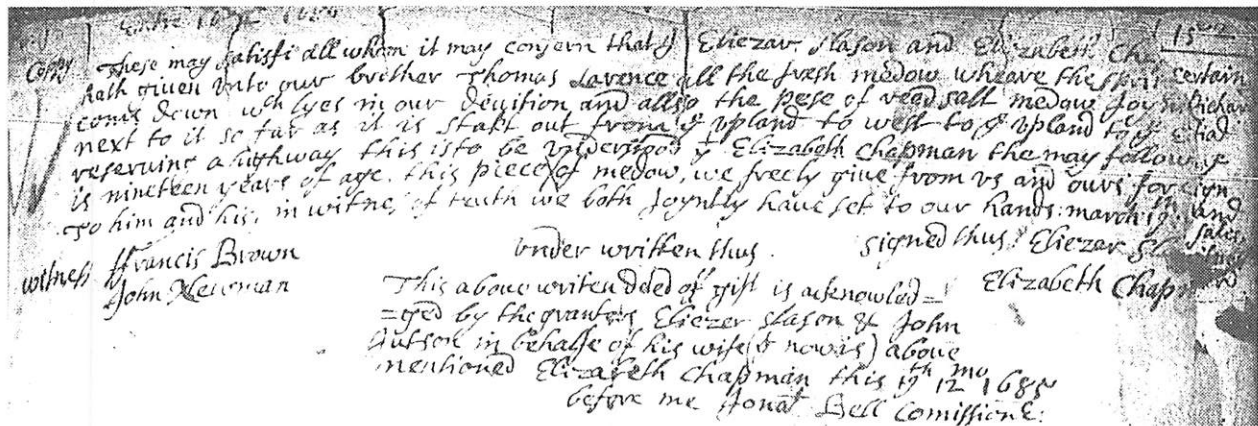 Copy These may satisfi all whom it may consern that Eliezar Slason and Elizabeth Cha
hath given vnto our brother Thomas Larence all the fresh medow wheare the
coms down wch lyes in our devision and allso the pese of reed salt medow Joyn
next to it so far as it is stakt out from ye vpland to west to ye vpland to ye
reserving a highway this is to be vnderstood yt Elizabeth Chapman
is nineteen years of age. this piece of medow, we freely give from vs and ours for
To him and his, in witnes of truth we both Joyntly have set to our hands: march
vnder written thus. signed thus: Eliezer Sl
witness ffrancis Brown
John Newman Elizabeth Chapm
This above writen deed of gift is acknowled=
=ged by the granters Eliezer Slason & John
in behalfe of his wife (yt now is) above
mentioned Elizabeth Chapman this 19th 12 mo 1685
before me Jonat Bell Comissione:
15
certain
Richar
and
sales